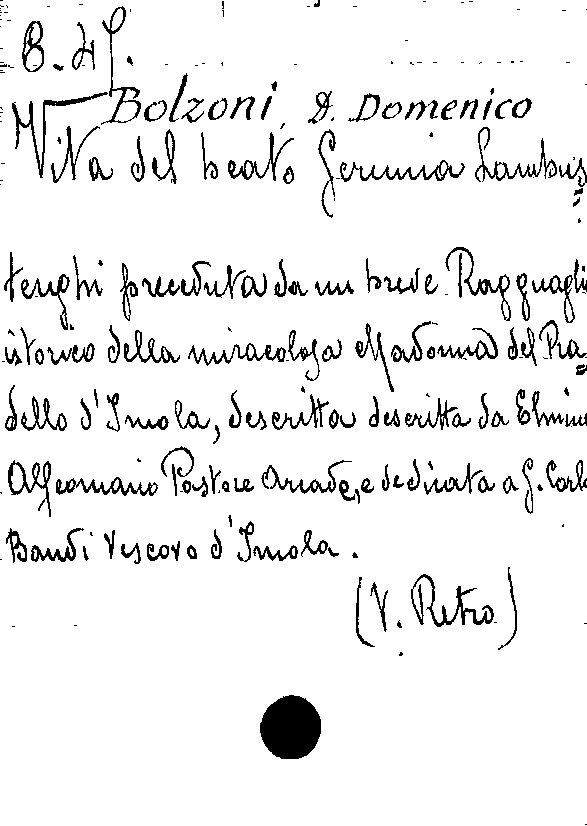 B. 45.
Bolzoni, D. Domenico
Vita del beato Geremia Lambus=
tenghi preceduta da un breve Ragguaglio
istorico della miracolosa Madonna del Pra=
dello d'Imola, descritta descritta da Elmin
Alfeomano Pastore Arcade, e dedicata a G. Carlo
Bandi Vescovo d'Imola.
(V. Retro)